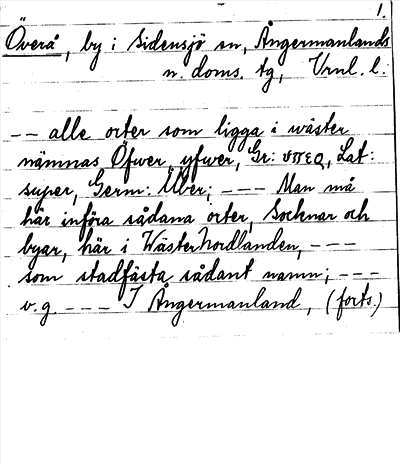 1.
Överå, by i Sidensjö sn, Ångermanlands
n. doms. tg, Vrnl. l.:
-- alle orter som ligga i wäster
nämnas Öfwer, yfwer, Gr: υπερ, Lat:
super, Germ: Über; --- Man må
här införa sådana orter, Socknar och
byar, här i WästerNordlanden, ---
som stadfästa sådant namn; ---
v.g. --- I Ångermanland, (forts.)